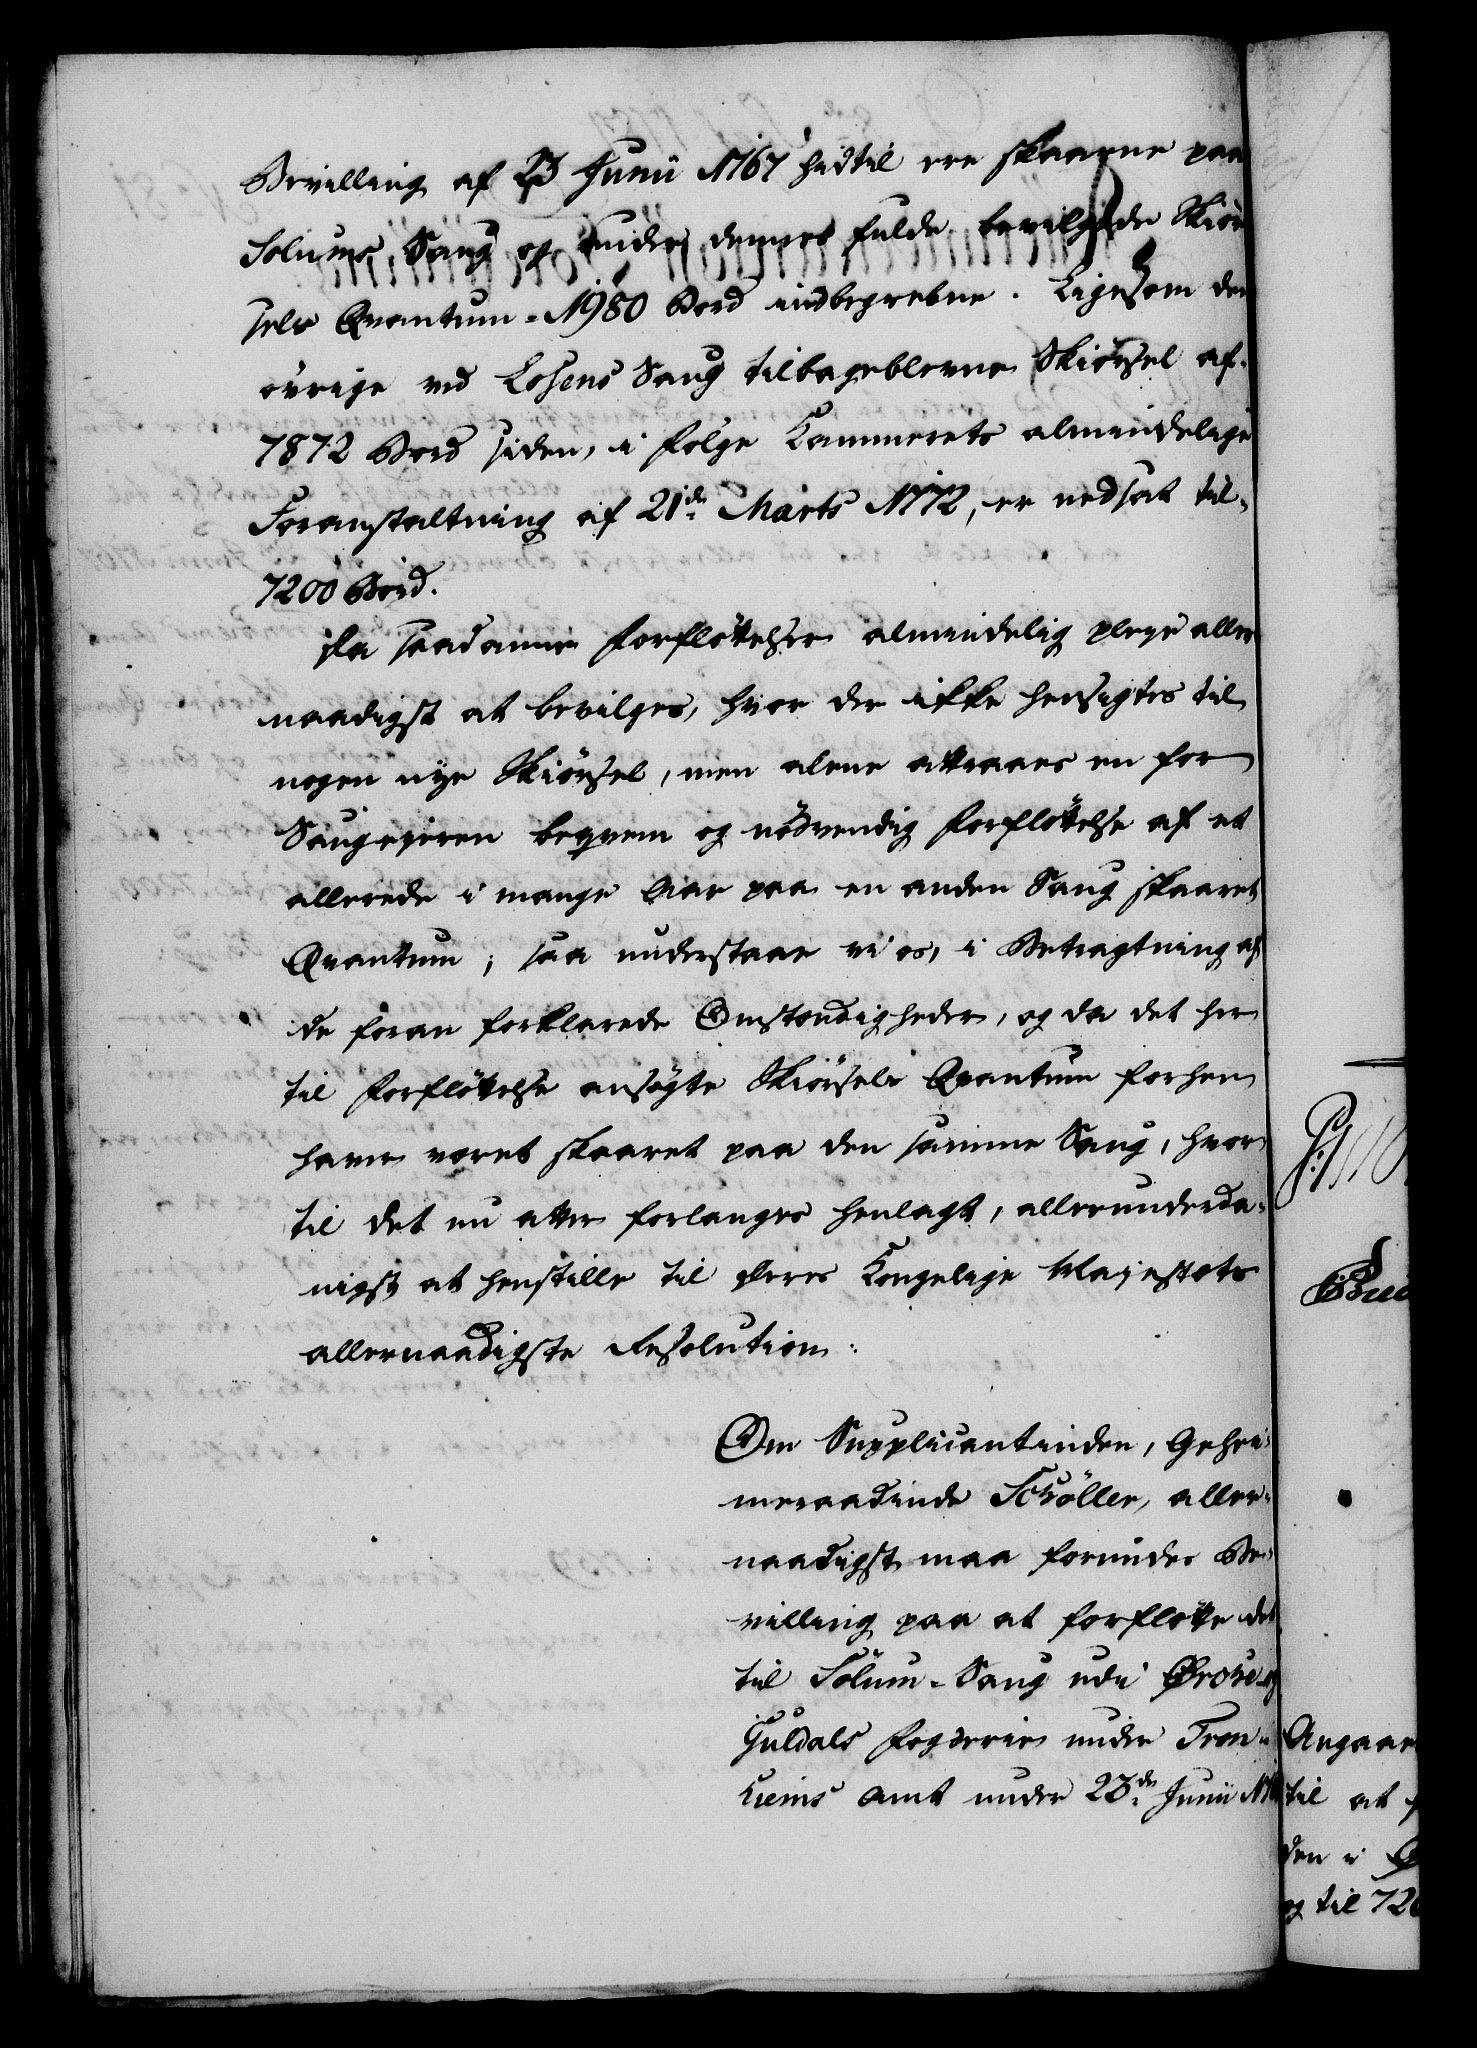 Bevilling af 23 Junii 1767 hidtil ere skaarne paa
Solums Saug og under dennes fulde bevilgede Skiør
sels Qvantum - 1980 Bord indbegrebne. Ligesom den
øvrige ved Lesens Saug tilbageblevne Skiørsel af
7872 Bord siden, i følge Kammerets almindelige
Foranstaltning af 21de Marts 1772, er nedsat til
7200 Bord.
Da saadanne Forfløttelser almindelig pleye aller
naadigst at bevilges, hvor der ikke hensigtes til
nogen nye Skiørsel, men alene attraaes en for
Saugeyeren beqvem og nødvendig Forfløttelse af et
allerede i mange Aar paa en anden Saug skaaret
Qvantum; saa understaae vi os, i Betragtning af
de foran forklarede Omstændigheder, og da det her
til Forfløttelse ansøgte Skiørsels Qvantum forhen
haver været skaaret paa den samme Saug, hvor
til det nu atter forlanges henlagt, allerunderda-
nigst at henstille til Deres Kongelige Majestæts
allernaadigste Resolution:
Om Supplicantinden, Gehei-
meraadinde Schøller, aller-
naadigst maa forundes Be-
villing paa at forfløtte det
til Solum-Saug udi Ørche- og
Guldals Fogderie under Tron-
hiems Amt under 23de Junii 17
Angaae
til at
den i
og til 720